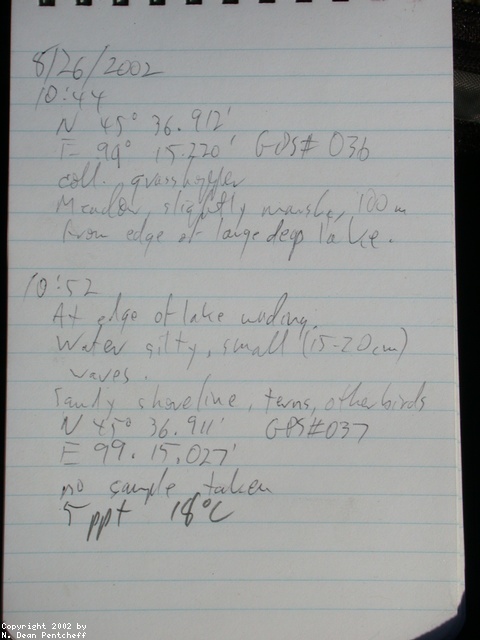 8/26/2002
10:44
N 45° 36.912'
E 99° 15.220' GPS# 036
coll. grasshopper
Meadow slightly marshy, 100 m
from edge of large deep lake.
10:52
At edge of lake wading.
Water silty, small (15-20cm)
waves.
Sandy shoreline, terns, other birds
N 45° 36.911' GPS#037
E 99. 15.027'
no sample taken
5 ppt 18°C
Copyright 2002 by
N. Dean Pentcheff